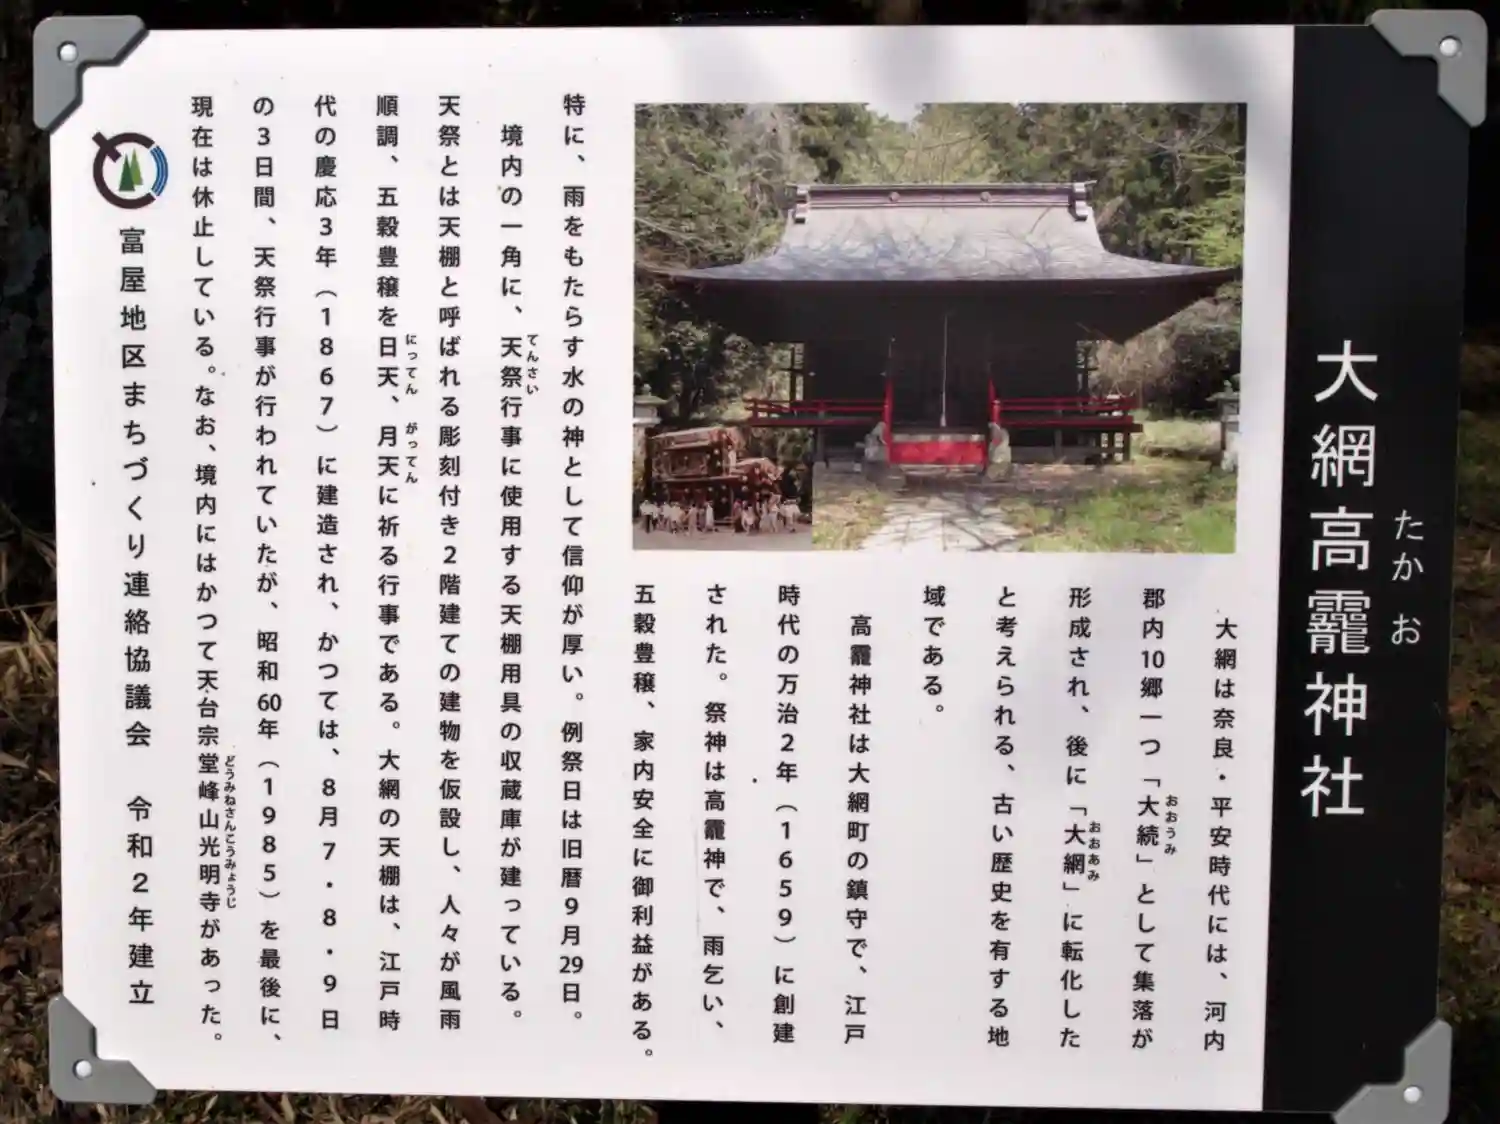 大網高龗神社
たかお
大網は奈良・平安時代には、河内
郡内10郷一つ「大続」として集落が
おおうみ
形成され、後に「大網」に転化した
おおあみ
と考えられる、古い歴史を有する地
域である。
高龗神社は大網町の鎮守で、江戸
時代の万治2年（1659）に創建
された。祭神は高龗神で、雨乞い、
五穀豊穣、家内安全に御利益がある。
特に、雨をもたらす水の神として信仰が厚い。例祭日は旧暦9月29日。
境内の一角に、天祭行事に使用する天棚用具の収蔵庫が建っている。
てんさい
天祭とは天棚と呼ばれる彫刻付き2階建ての建物を仮設し、人々が風雨
順調、五穀豊穣を日天、月天に祈る行事である。大網の天棚は、江戸時
にってん がってん
代の慶応3年（1867）に建造され、かつては、8月7・8・9日
の3日間、天祭行事が行われていたが、昭和60年（1985）を最後に、
現在は休止している。なお、境内にはかつて天台宗堂峰山光明寺があった。
どうみねさんこうみょうじ
富屋地区まちづくり連絡協議会 令和2年建立